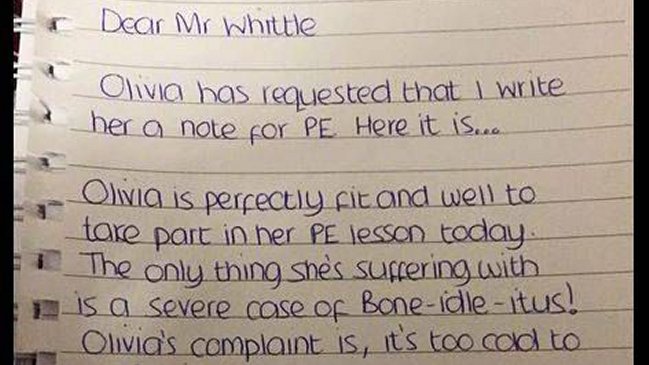 Dear Mr Whittle
Olivia has requested that I write
her a note for PE Here it is...
Olivia is perfectly fit and well to
take part in her PE lesson today.
The only thing she's suffering with
is a severe case of Bone-idle-itus!
Olivia's complaint is, it's too cold to